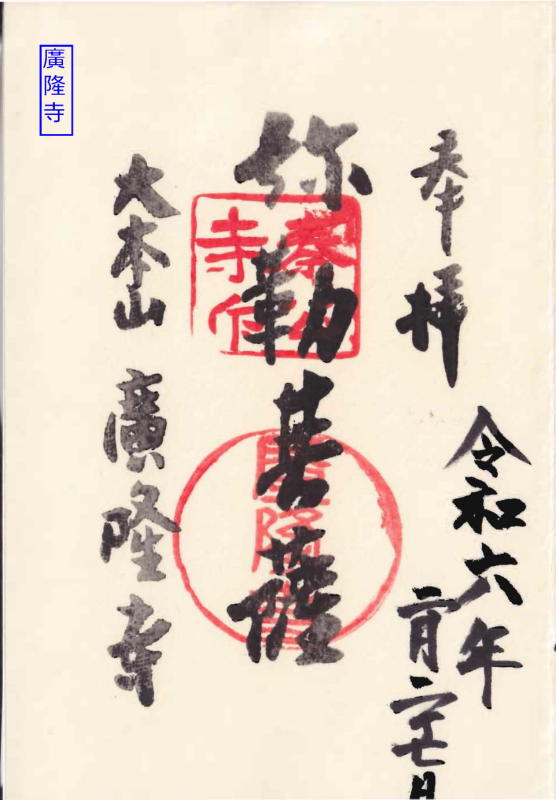 奉拝
令和六年
二月二十七日
弥勒菩薩
大本山 廣隆寺
廣隆寺